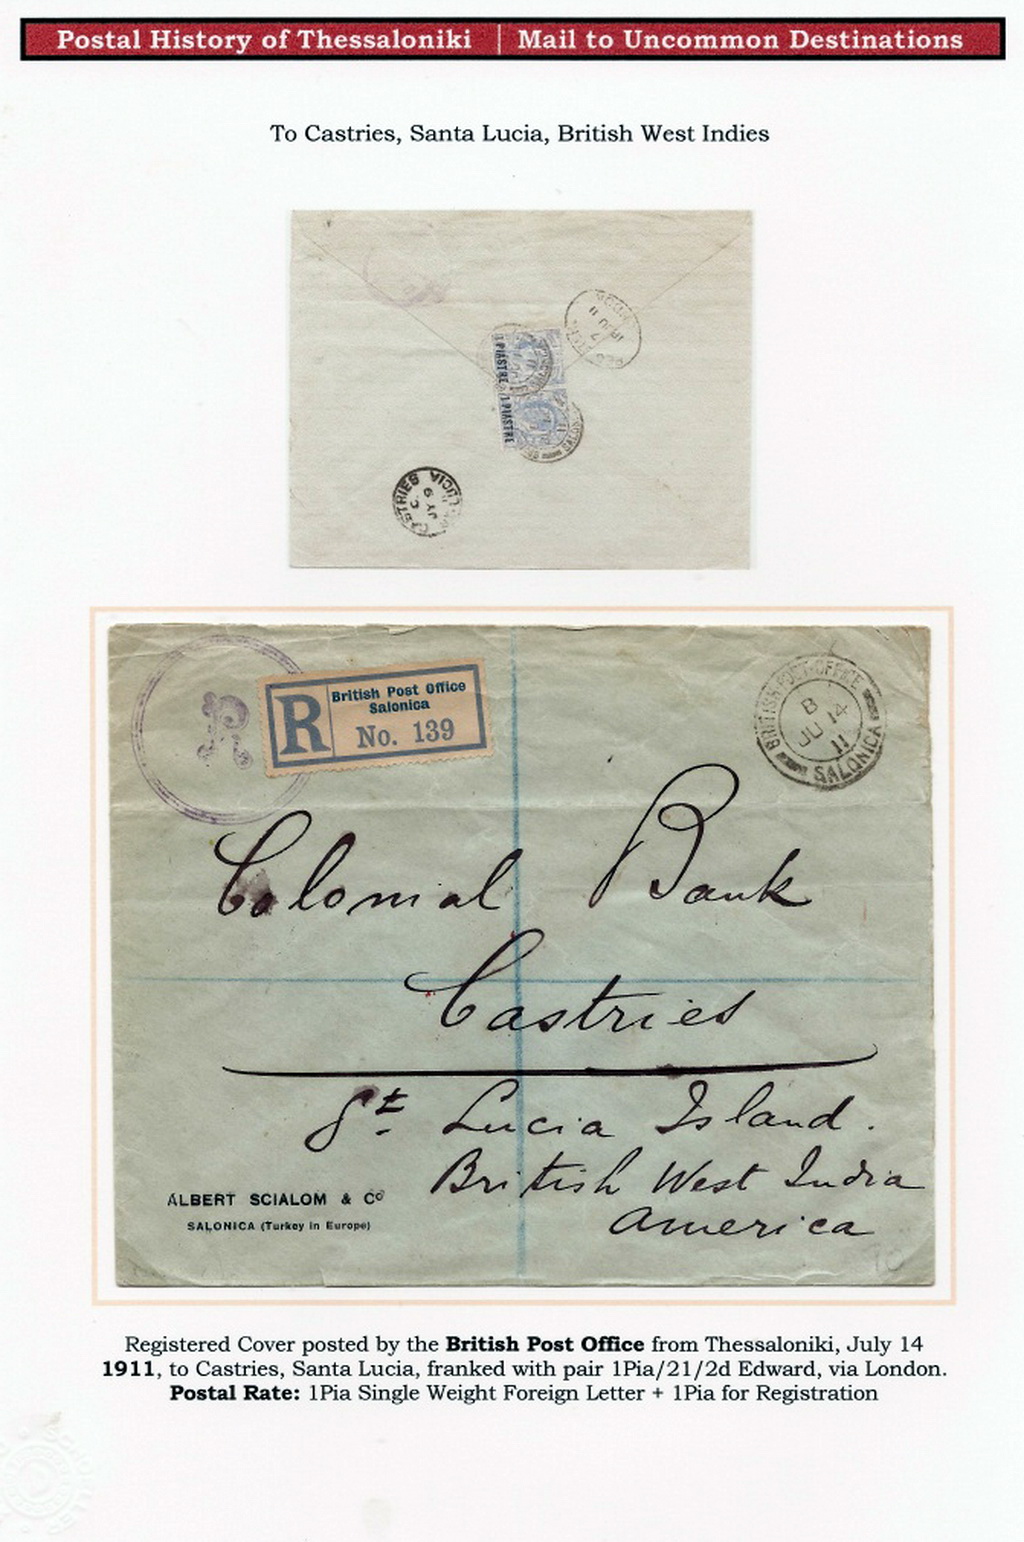 Postal History of Thessaloniki | Mail to Uncommon Destinations
To Castries, Santa Lucia, British West Indies
1 PIASTRE
1 PIASTRE
SALON
7 JU 11
CASTRIES
LUCIA
C
JY 9
R
R
British Post Office
Salonica
No. 139
BRITISH POST OFFICE
B
JU 14
11
SALONICA
Colonial Bank
Castries
St. Lucia Island.
British West India
America
ALBERT SCIALOM & Co
SALONICA (Turkey in Europe)
Registered Cover posted by the British Post Office from Thessaloniki, July 14
1911, to Castries, Santa Lucia, franked with pair 1Pia/21/2d Edward, via London.
Postal Rate: 1Pia Single Weight Foreign Letter + 1Pia for Registration